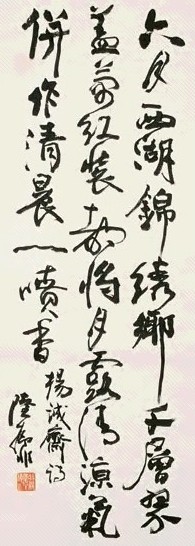 六月西湖錦綉鄉千層翠
蓋萬紅裝都將月露清涼氣
併作清晨一噴香
楊誠齋詩
陸